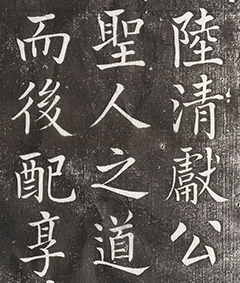 陸清獻公
聖人之道
而後配享